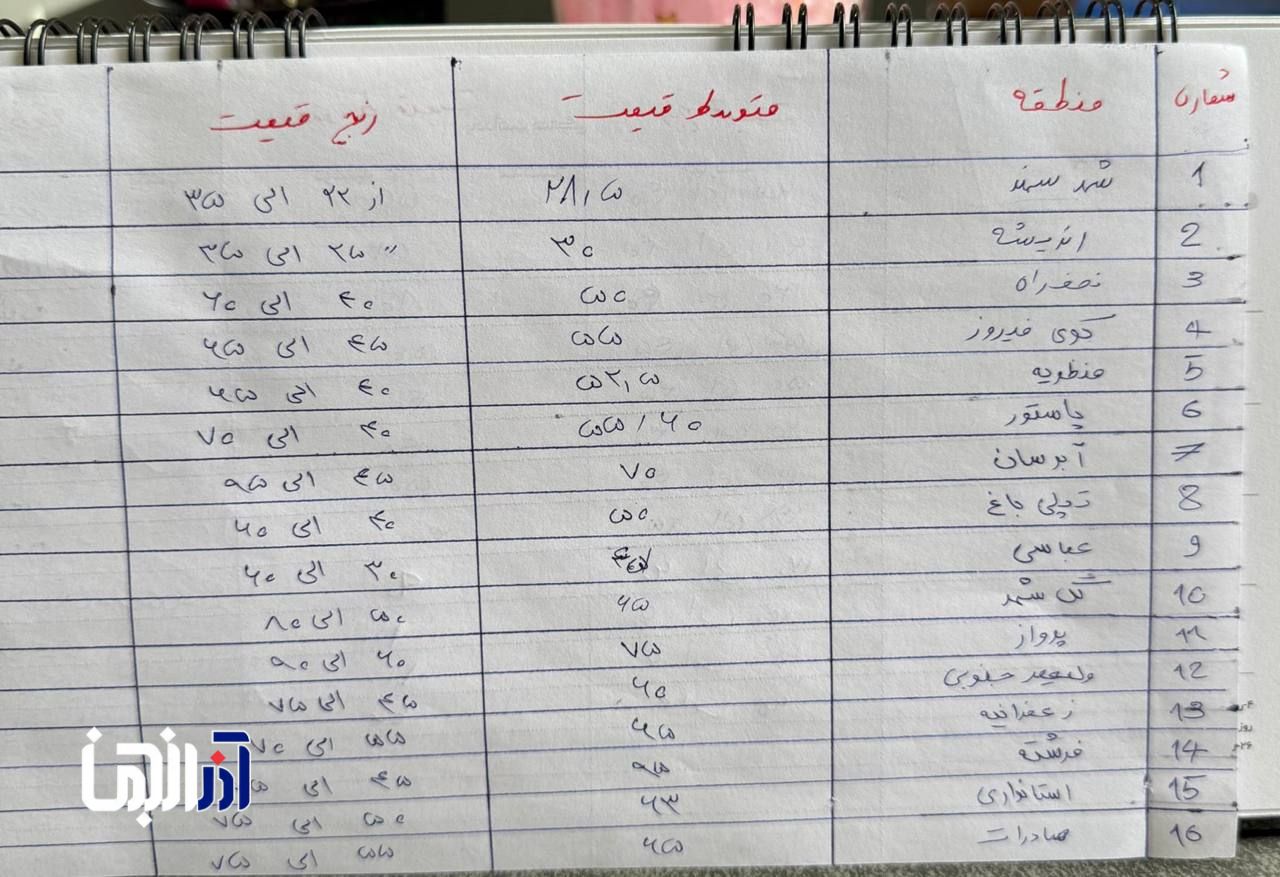 شماره منطقه متوسط قیمت رنج قیمت
1 شهر سهند ۲۸,۵ از ۲۲ الی ۳۵
2 اندیشه ۳۰ " ۲۵ الی ۳۵
3 نصفراه ۵۰ ۴۰ الی ۶۰
4 کوی فیروز ۵۵ ۴۵ الی ۶۵
5 منظریه ۵۲,۵ ۴۰ الی ۶۵
6 پاستور ۵۵/۶۰ ۴۰ الی ۷۰
7 آبرسان ۷۰ ۴۵ الی ۹۵
8 توپلی باغ ۵۰ ۴۰ الی ۶۰
9 عباسی ۳۰ الی ۶۰
10 گلشهر ۶۵ ۵۰ الی ۸۰
11 پرواز ۷۵ ۶۰ الی ۹۰
12 ولیعهد جنوبی ۶۰ ۴۵ الی ۷۵
13 زعفرانیه ۶۵ ۵۵ الی ۷۰
14 فرشته ۹۵ ۴۵ الی
15 استانداری ۶۳ ۵۰ الی ۷۵
16 صادرات ۶۵ ۵۵ الی ۷۵
آذرانجمن